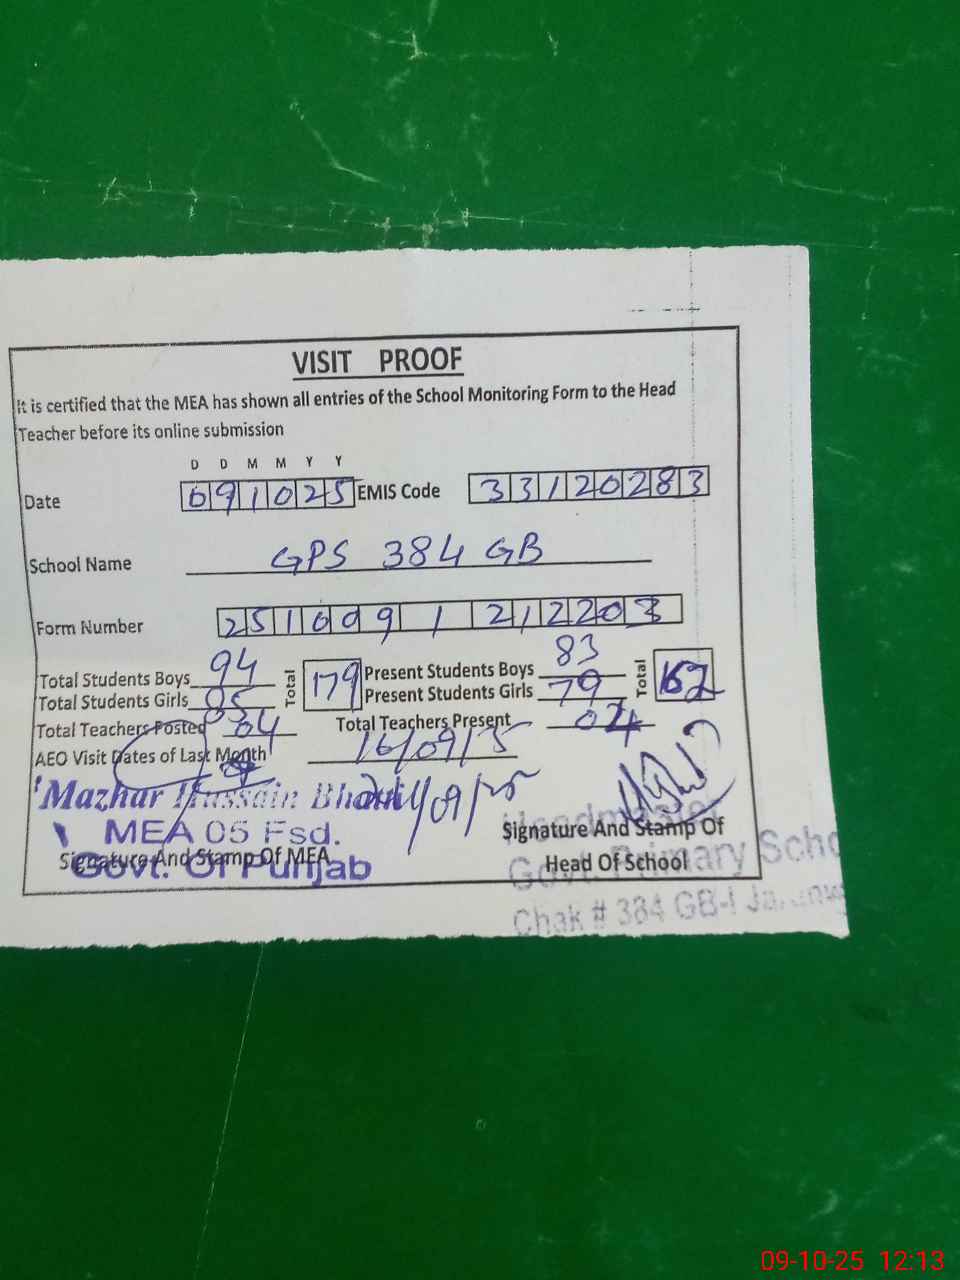 VISIT PROOF
It is certified that the MEA has shown all entries of the School Monitoring Form to the Head
Teacher before its online submission
D D M M Y Y
Date 091025 EMIS Code 33120283
School Name GPS 384 GB
Form Number 2510091212203
Total Students Boys 94 Total 179 Present Students Boys 83 Total 162
Total Students Girls 85 Present Students Girls 79
Total Teachers Posted 04 Total Teachers Present 04
AEO Visit Dates of Last Month 16/09/25
Mazhar Hussain Bhatti
MEA 05 Fsd.
Govt. Of Punjab
Signature And Stamp Of MEA
Signature And Stamp Of
Head Of School
Headmaster
Govt. Primary Scho
Chak # 384 GB-I
09-10-25 12:13